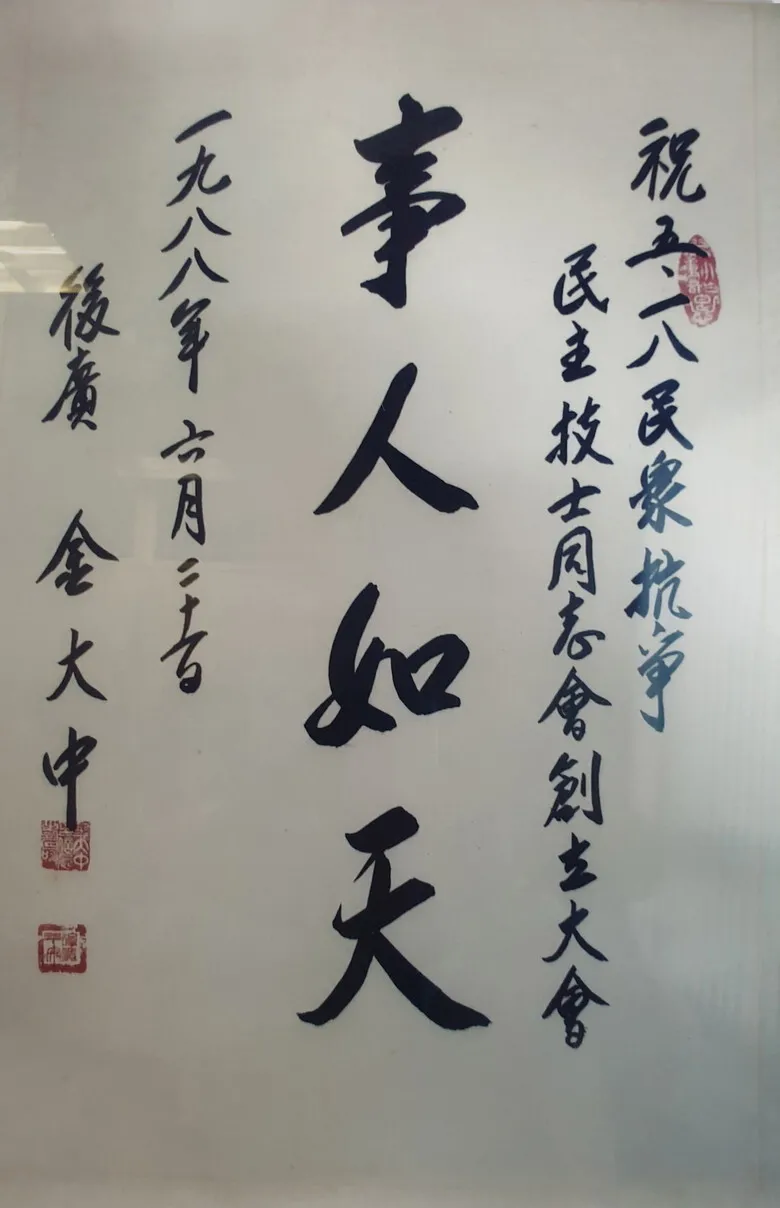 祝五·一八民衆抗爭
民主技士同志會創立大會
事人如天
一九八八年六月二十一日
後廣 金大中